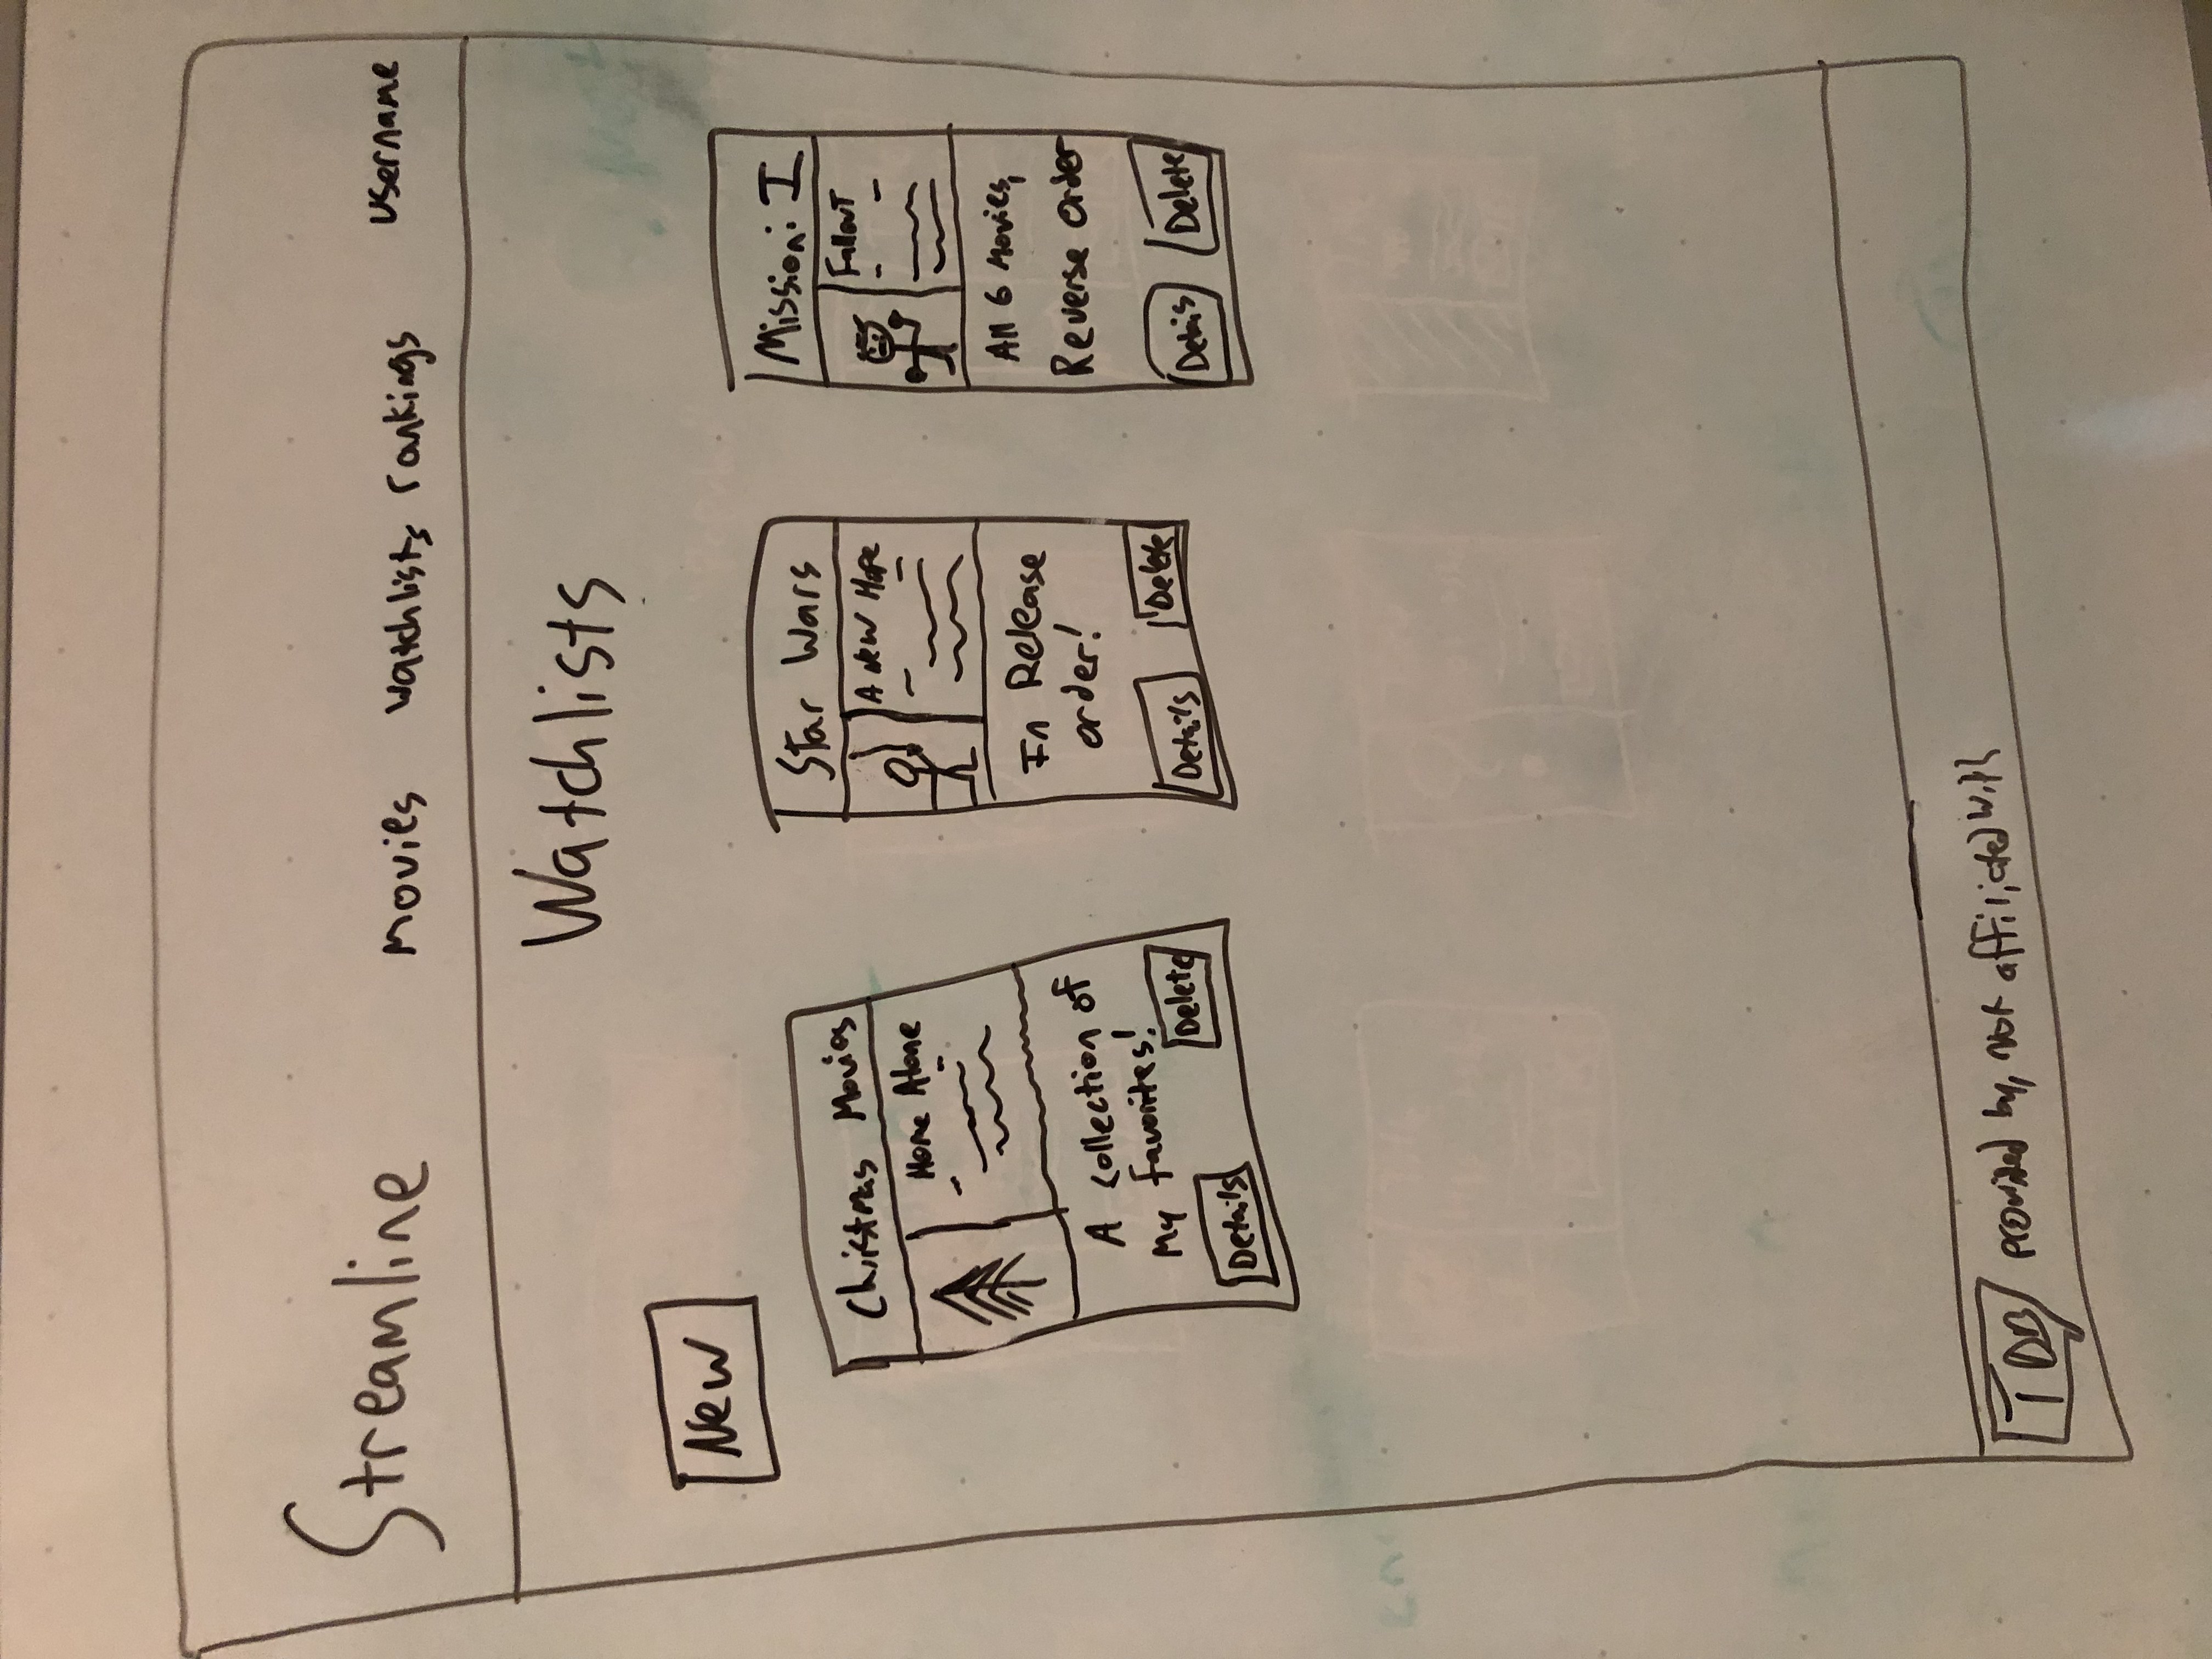 Streamline
Movies watchlists rankings username
Watchlists
New
Christmas Movies
Home Alone
A collection of
My favorites!
Details Delete
Star Wars
A New Hope
In Release
order!
Details Delete
Mission: I
Fallout
All 6 Movies,
Reverse order
Details Delete
TDB provided by, not affiliated with